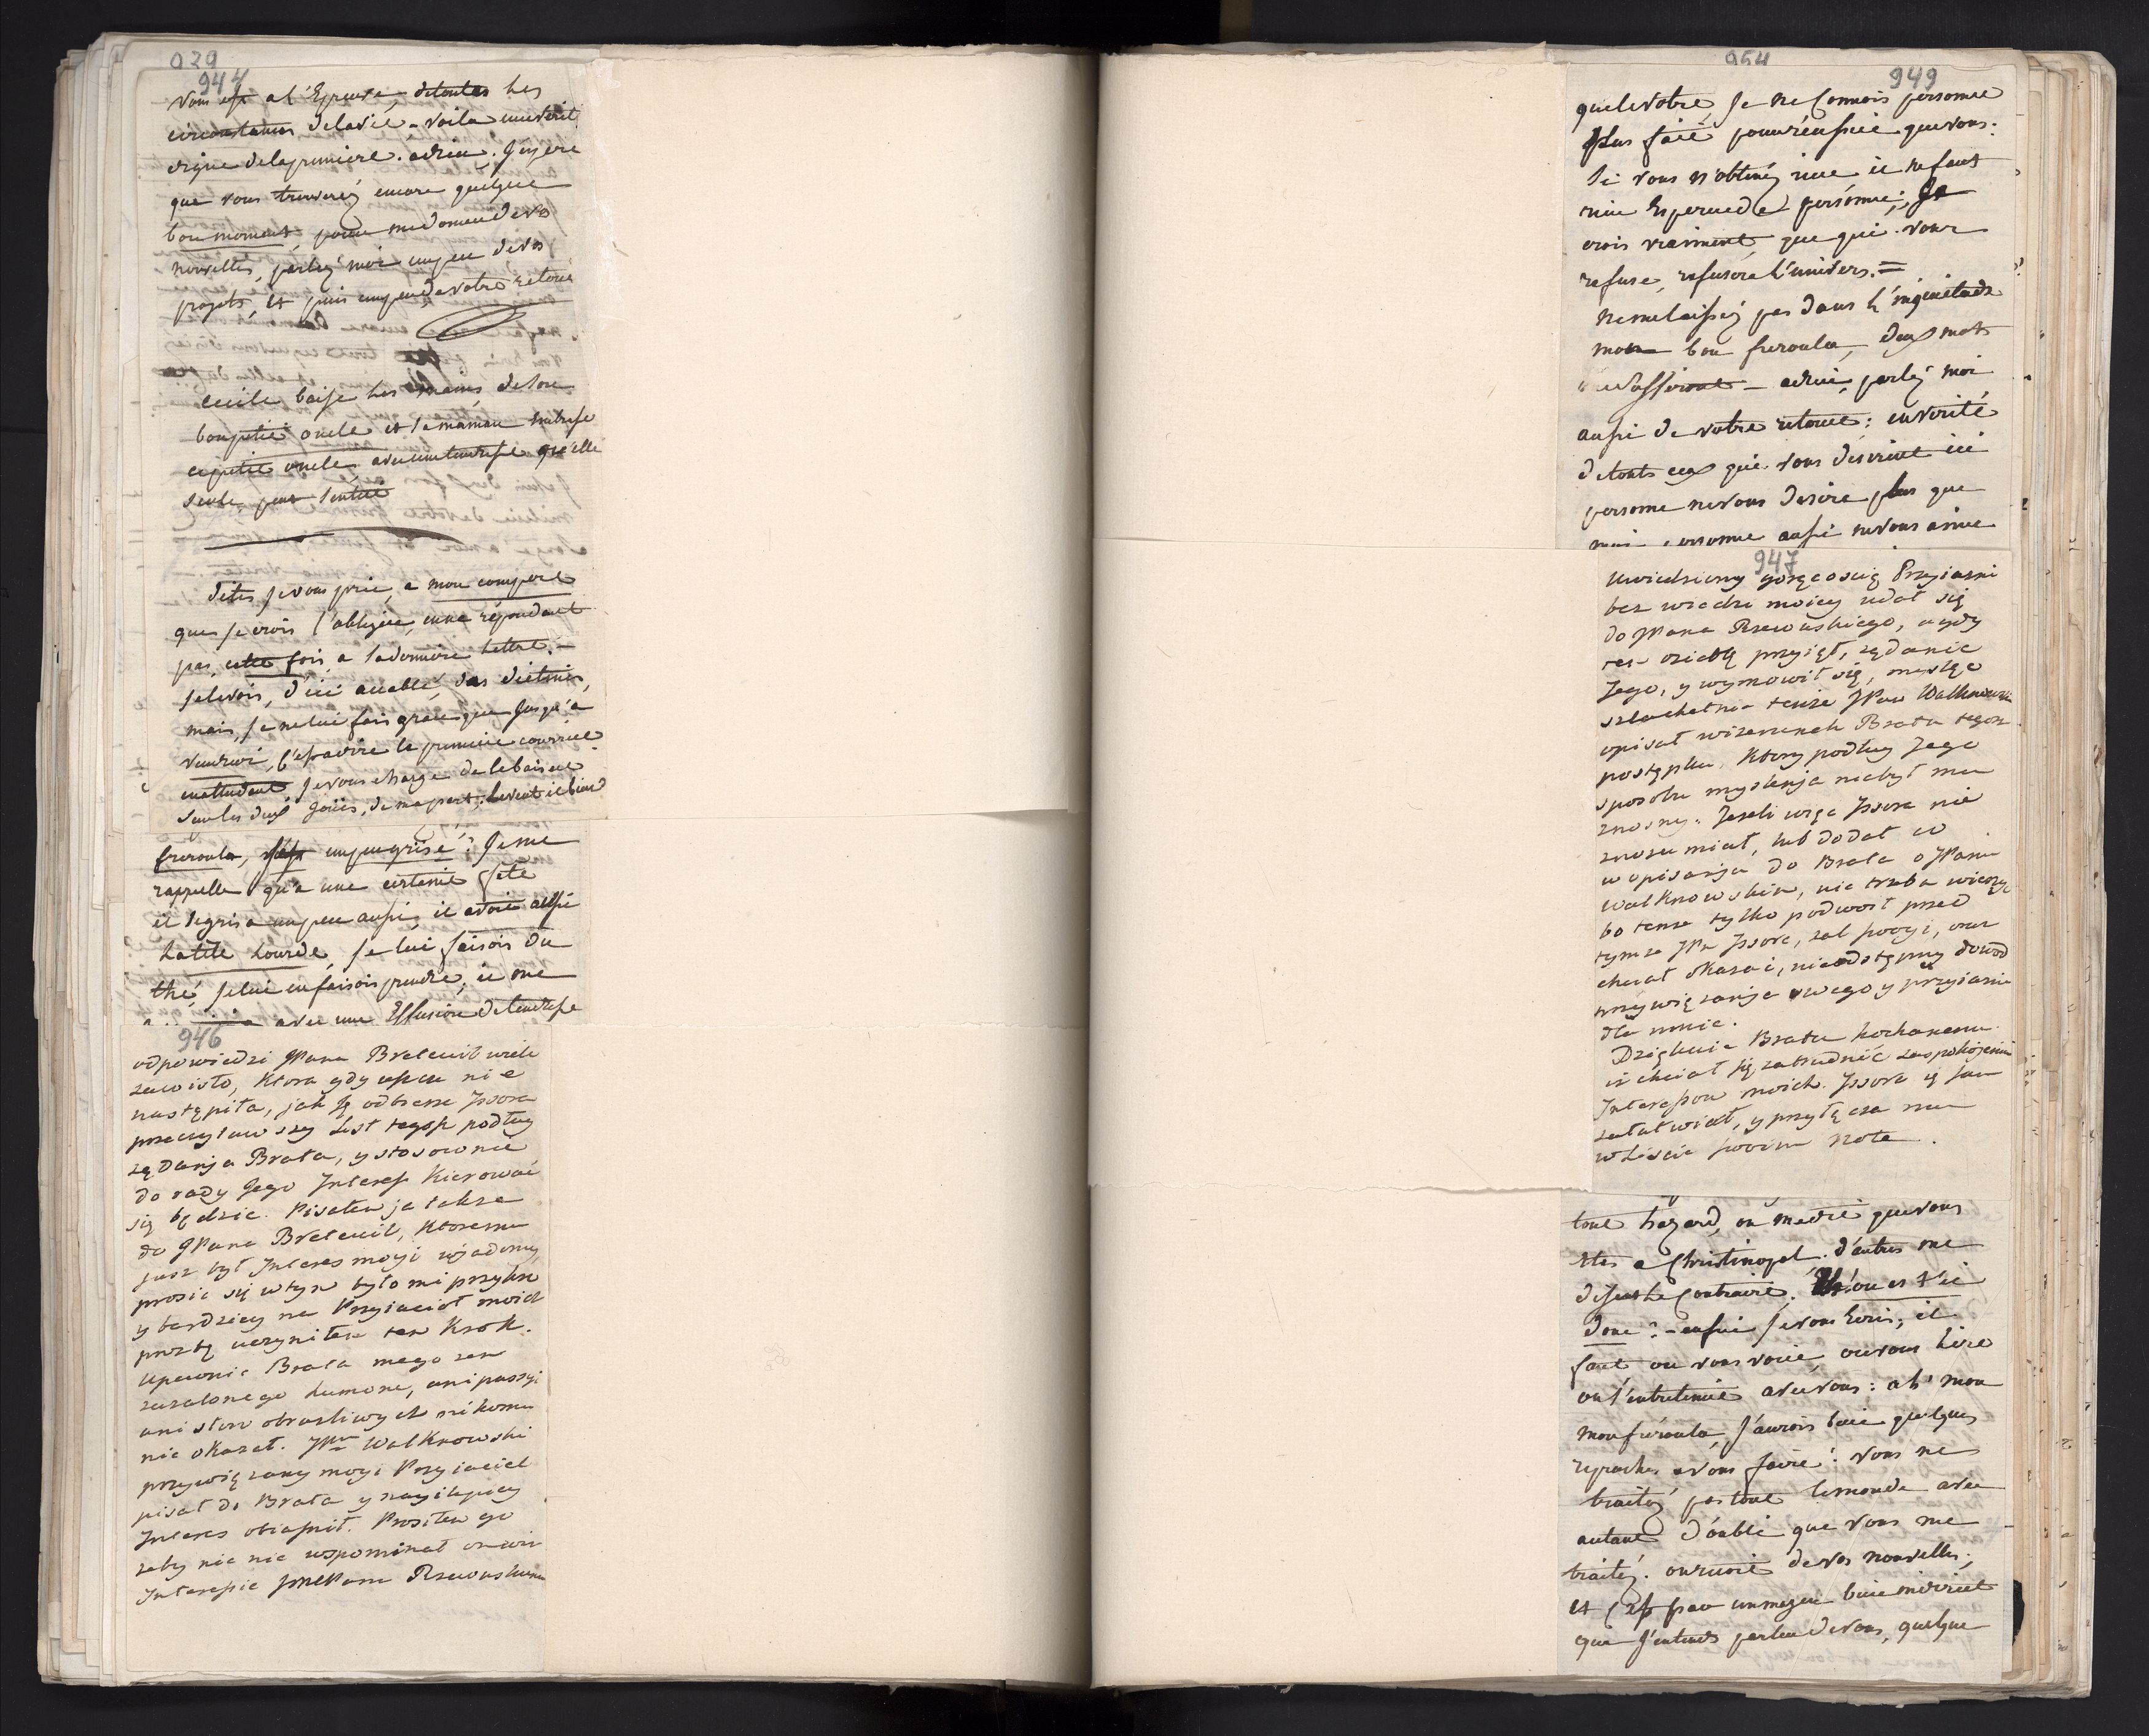 939
944
Vous est a l'Epreuve, detoutes les
circonstances delavie, - voila uneverité
digne delapremiere. adieu. J'espere
que vous trouveréz encore quelque
bon moment, pour medonner devos
nouvelles, parléz moi unpeu devos
projets, et puis unpeu, de votre retour
Cecile baise les mains, deson
bonpetit oncle et la maman embrasse
cepetit oncle avecunetendresse qu'elle
seule peut sentir
dites jevous prie, a mon compere
que je crois l'obliger, enne répondant
pas, cette fois a sadernière lettre. -
jelevois, d'ici accablé,
mais, je nelui fais grace que jusqu'a
vendredi, c'estadire le premier courrier
enattendant jevous charge de lebaiser
surles deux joües, demapart,
freroula, unpeugrisé? Jeme
rappelle qu'a une certaine fete
il segrisa unpeu aussi, il avoit aussi
latete lourde, je lui faisois du
thé, jelui enfaisois prendre, il me
avec une Effusion detendresse
946
odpowiedzi JPana Breteuil wiele
zawisło, ktora gdy ieszcze nie
nastąpiła, jak ją odbierze Jssora
przeczytawszy List tegoż podług
żądanja Brata, y stosownie
do rady Jego Interess Kierować
się będzie. Pisałem ja także
do JPana Breteuil, ktoremu
już był Interes moyi wjadomy,
prosić się wtym było mi przykro
y bardziey na Przyiacioł moich
prozbę uczyniłem ten Krok.
Upewnić Brata mego żem
zuchwałego humoru, ani passyi
ani słow obrazliwych nikomu
nie okazał. JPan Walknowski
przywiązany moyi Przyiaciel
pisał do Brata y naylepiey
Interes obiaśnił. Prosiłem go
żeby nic nie wspominał
Interessie JPana Rzewuskiemu
954
949
quelevotre, Je ne Connois personne
plus fait pourréussir quevous.
Si vous n'obtenéz rien il nefaut
rien Esperer de personne; Je
crois vraiment, que qui vous
refuse, refuseroit l'univers. =
Nemelaisséz pas dans l'inquietude
mon bon freroula, deux mots
mesuffiront - adieu, parléz moi
aussi de votre retour; enverité
detouts ceux qui vous desirent ici
personne nevous desire plus que
moi, personne aussi nevous aime
947
Uwiedziony gorącością Przyiazni
bez wiedzy moiey udał się
do JPana Rzewuskiego, a gdy
ten oziębłę przyiął, żądanie
Jego, y wymowił się, myśląc
szlachetnie tenże JPan Walknowski
opisał wizerunek Bratu tegoż
postępku, Ktory podług Jego
sposobu myslenja niebył mu
znosny. Jeżeli więc Jssora nie
zrozumiał, lub dodał co
w opisanju do Brata o JPanu
Walknowskim, nie trzeba wierzyć
bo tenże tylko podwość przed
tymże JPa Jssore, żal swoyi, oraz
chciał okazać, nieodstępny dowod
przywiązanja swego y przyiazni
dla mnie.
Dziękuie Bratu kochanemu
iż chciał się zatrudnić zaspokojeniem
Interessow moich. Jssora ią sam
załatwiał, y przyłącza mu
w Liscie swoim Note.
tout hazard, on medit quevous
etes a Christinopol. d'autres me
disent le Contraire. ou est t'il
donc? - enfin Jevous Ecris; il
faut ou vous voir, ouvous Lire
ou s'entretenir avecvous: ah! mon
monfreroula, J'aurois bien quelques
reproches avous faire! vous ne
traitéz pastout lemonde avec
autant d'oubli que vous me
traitéz. onrecoit devos nouvelles,
et c'est par unmoyen bien indirect
que J'entends parler devous, quelque